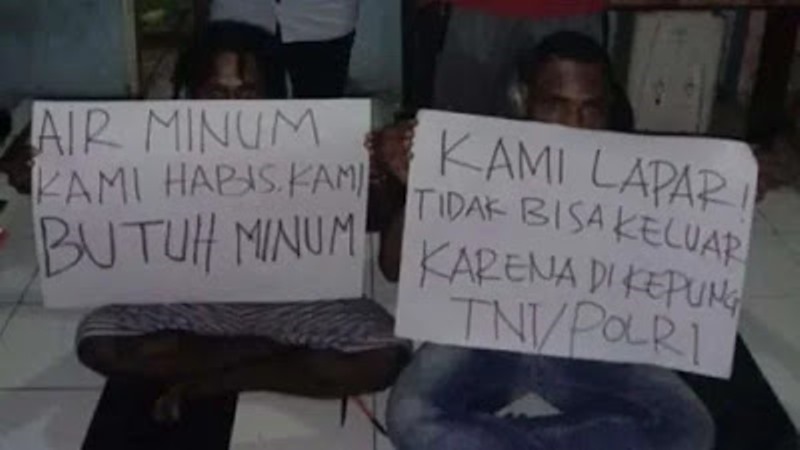 AIR MINUM
KAMI HABIS. KAMI
BUTUH MINUM
KAMI LAPAR!
TIDAK BISA KELUAR
KARENA DI KEPUNG
TNI/POLRI